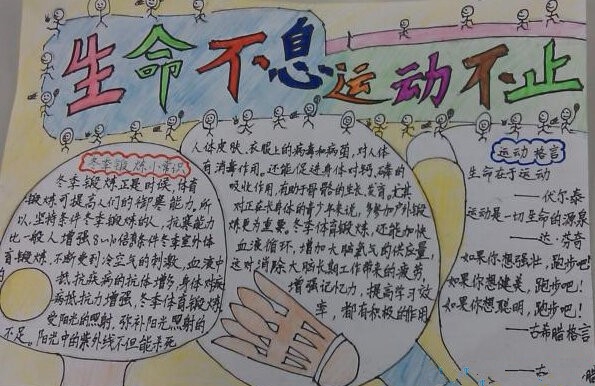 生命不息运动不止
冬季锻炼小常识
冬季锻炼正是时候,体育
锻炼可提高人们的御寒能力,所
以,坚持条件冬季锻炼的人,抗寒能力
比一般人增强8~10倍条件冬季室外体
育锻炼,不断受到冷空气的刺激,血液中
抵抗疾病的抗体增多,身体对疾
病抵抗力增强,冬季体育锻炼
受阳光的照射,弥补阳光照射的
不足。阳光中的紫外线不但能杀死
人体皮肤、衣服上的病毒和病菌,对人体
有消毒作用。还能促进身体对钙、磷的
吸收作用,有助于骨骼的生长、发育。尤其
对正在长身体的青少年来说,多参加户外锻
炼更为重要。冬季体育锻炼,还能加快
血液循环,增加大脑氧气的供应量,
这对消除大脑长期工作带来的疲劳,
增强记忆力,提高学习效
率,都有积极的作用
运动格言
生命在于运动
——伏尔泰
运动是一切生命的源泉
——达·芬奇
如果你想强壮,跑步吧!
如果你想健美,跑步吧!
如果你想聪明,跑步吧!
——古希腊格言
——古